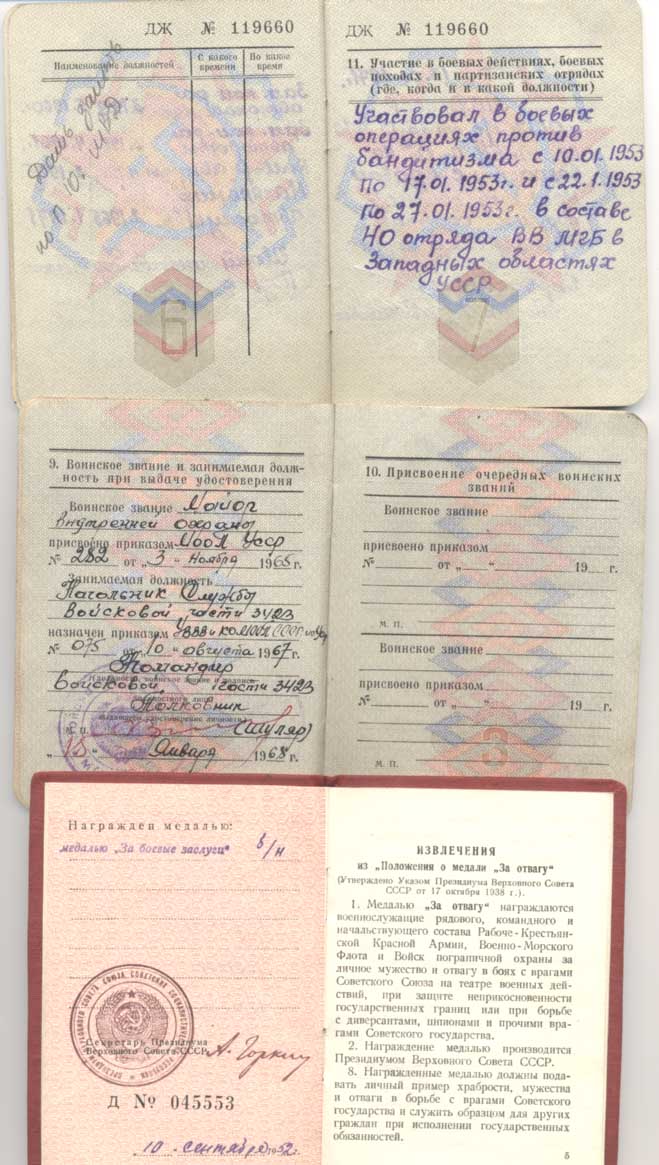 ДЖ № 119660
Наименование должностей
С какого времени
По какое время
6
ДЖ № 119660
11. Участие в боевых действиях, боевых
походах и партизанских отрядах
(где, когда и в какой должности)
Участвовал в боевых
операциях против
бандитизма с 10.01.1953
по 17.01.1953г. и с 22.1.1953
по 27.01.1953г. в составе
ЧО отряда ВВ МГБ в
Западных областях
УССР
7
9. Воинское звание и занимаемая долж-
ность при выдаче удостоверения
Воинское звание Майор
внутренней охраны
присвоено приказом МООП УССР
№ 282 от „3“ ноября 1965 г.
Занимаемая должность
Начальник Службы
Войсковой части 3423
назначен приказом
№ 075 от „10“ августа 1967 г.
Командир
Войсковой части 3423
Полковник
М. П. (Шуляр)
Января 1968 г.
10. Присвоение очередных воинских
званий
Воинское звание
присвоено приказом
№ от „ “ 19 г.
М. П.
Воинское звание
присвоено приказом
№ от „ “ 19 г.
М. П.
3
Награжден медалью:
медалью „За боевые заслуги“ б/н
Секретарь Президиума
Верховного Совета СССР А. Горкин
Д № 045553
10 сентября 1952 г.
ИЗВЛЕЧЕНИЯ
из „Положения о медали „За отвагу“
(Утверждено Указом Президиума Верховного Совета
СССР от 17 октября 1938 г.).
1. Медалью „За отвагу“ награждаются
военнослужащие рядового, командного и
начальствующего состава Рабоче-Крестьян-
ской Красной Армии, Военно-Морского
Флота и Войск пограничной охраны за
личное мужество и отвагу в боях с врагами
Советского Союза на театре военных дей-
ствий, при защите неприкосновенности
государственных границ или при борьбе
с диверсантами, шпионами и прочими вра-
гами Советского государства.
2. Награждение медалью производится
Президиумом Верховного Совета СССР.
8. Награжденные медалью должны пода-
вать личный пример храбрости, мужества
и отваги в борьбе с врагами Советского
государства и служить образцом для других
граждан при исполнении государственных
обязанностей.
5